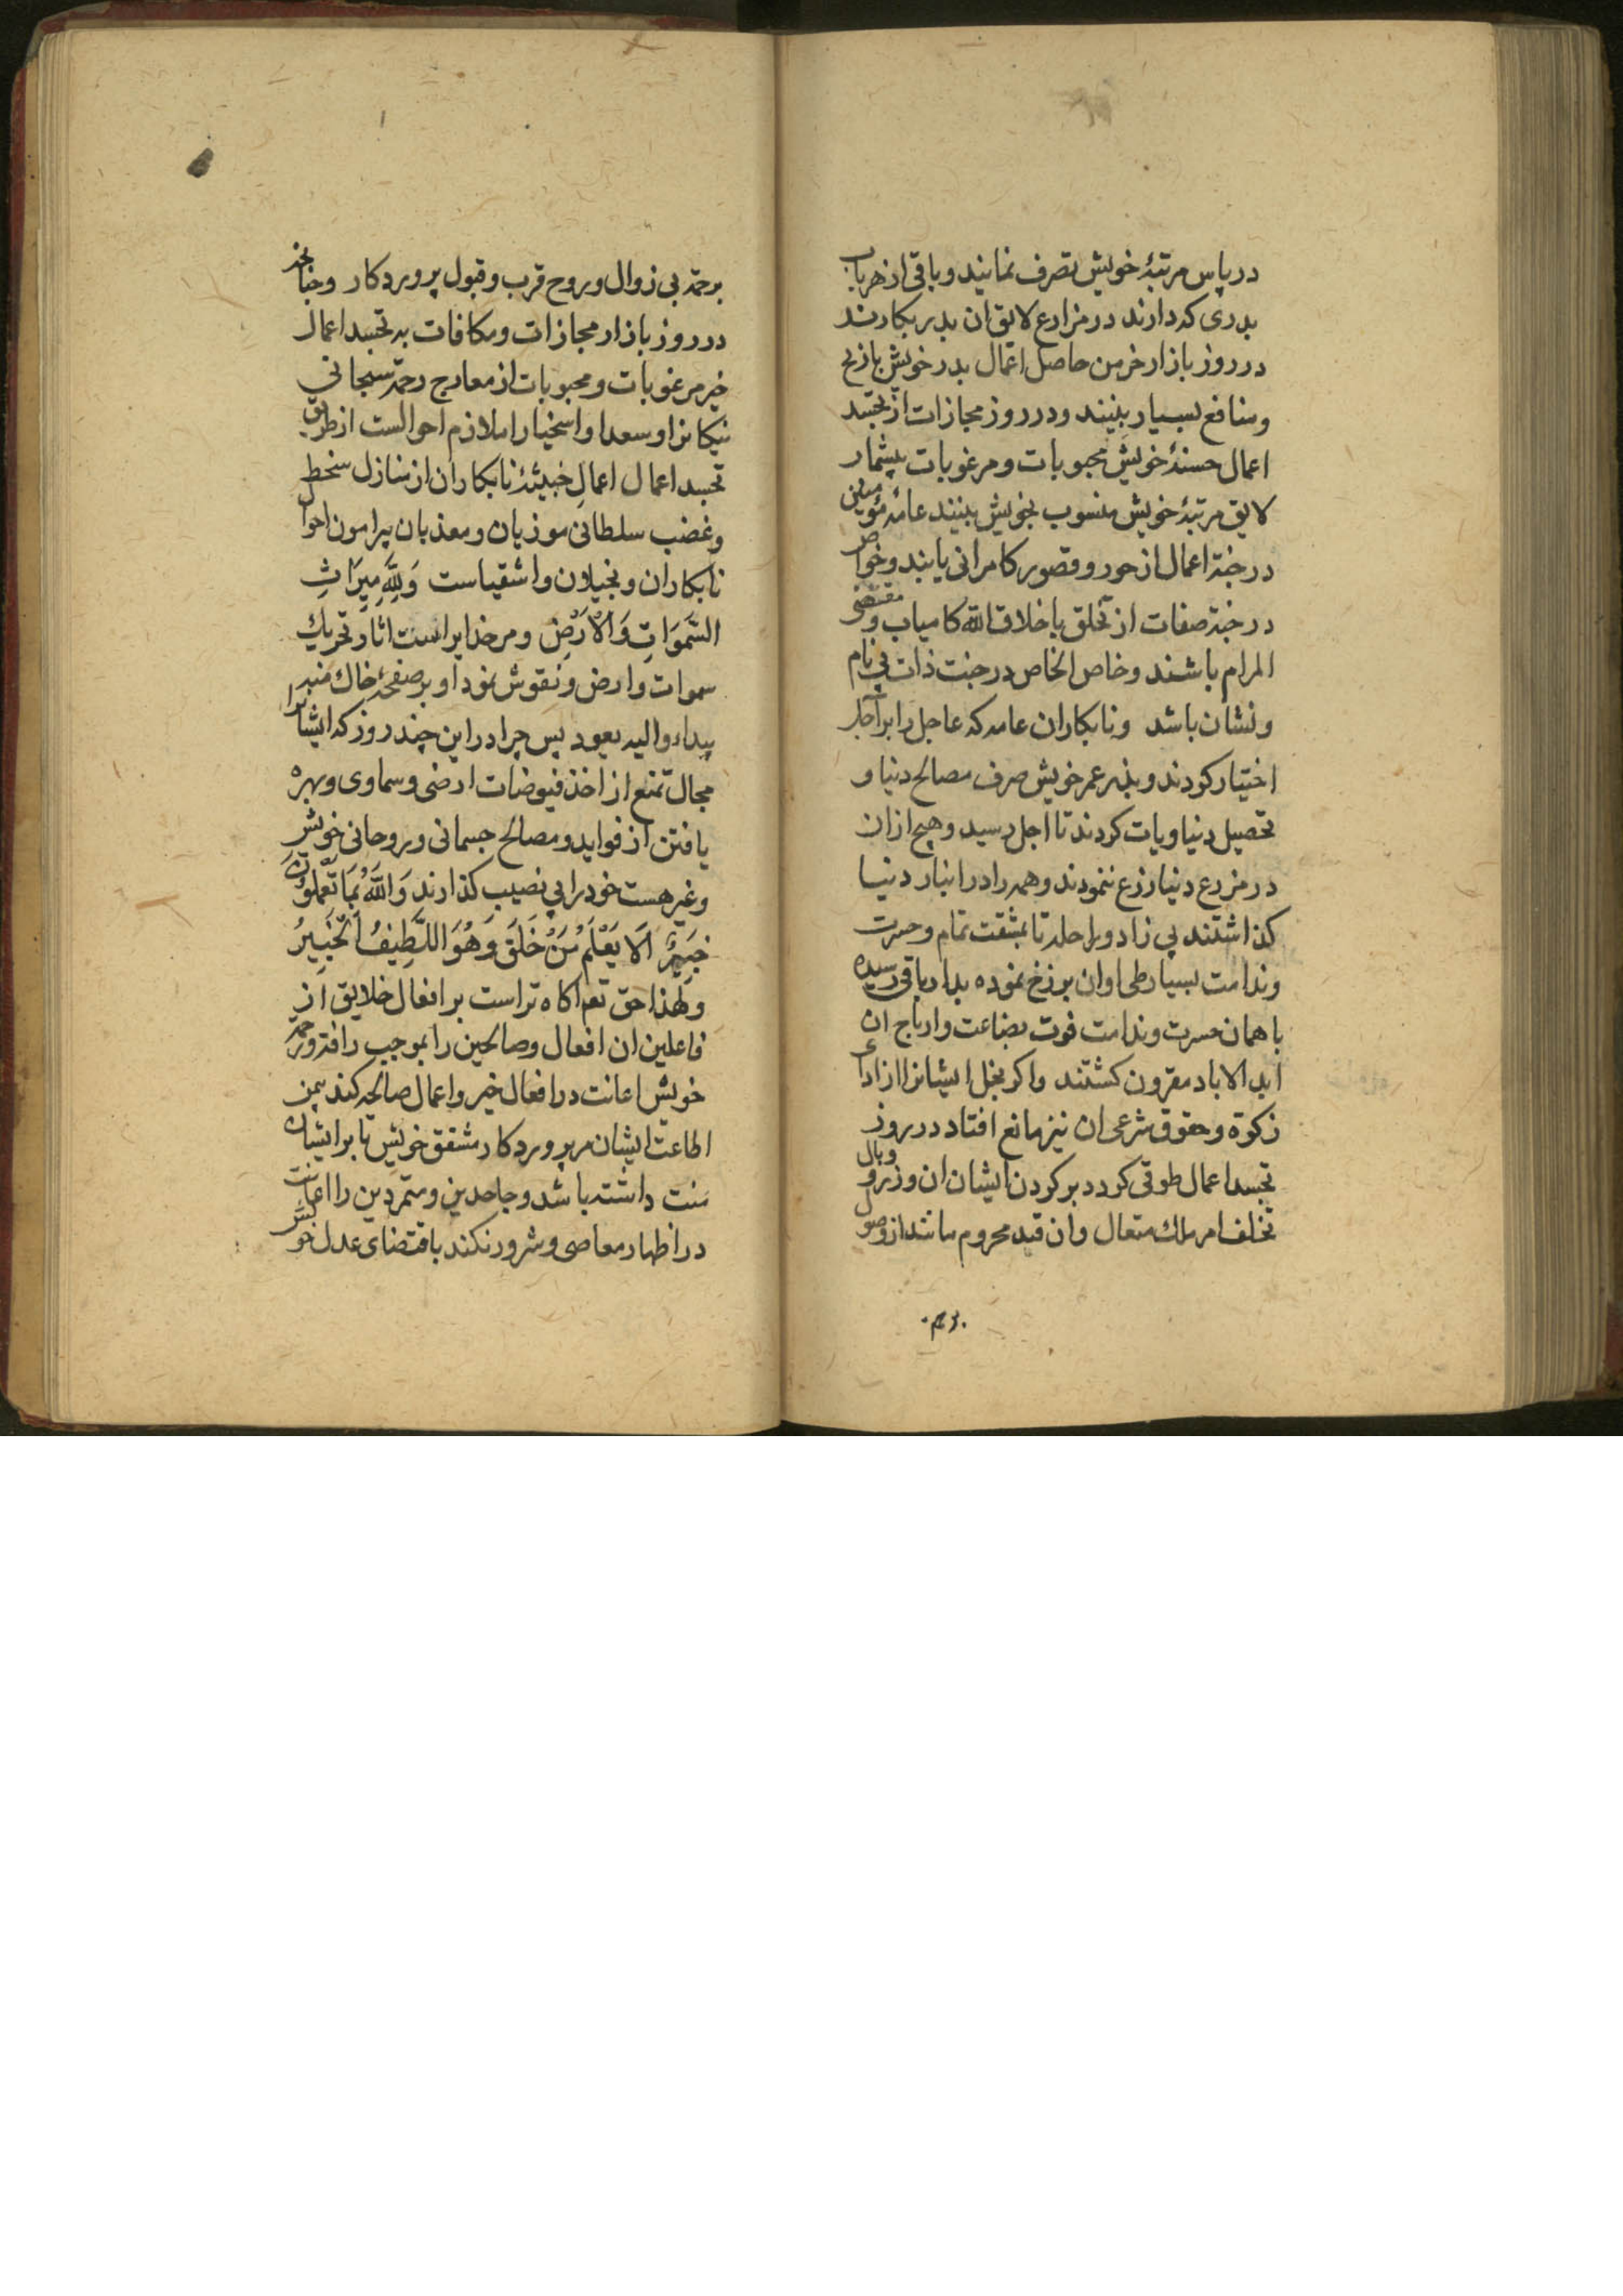 در پاس مرتبهٔ خویش تصرف نمایند و باقی از هر باب
بدری که دارند در مزارع لایق ان بدر بکارند
در روز بازار خرمن حاصل اعمال بدر خویش باز
ومنافع بسیار بینند ودر روز مجازات از تجسد
اعمال حسنهٔ خویش محبوبات ومرغوبات بیشمار
لایق مرتبهٔ خویش منسوب بخویش بینند عامهٔ مؤمنین
در جنة اعمال از حور وقصور کامرانی یابند وخواص
در جنة صفات از تخلق باخلاق الله کامیاب و مقتضی
المرام باشند وخاص الخاص در جنت ذات بی نام
ونشان باشد ونابکاران عامه که عاجل را بر آجل
اختیار کردند و عمر خویش صرف مصالح دنیا و
تحصیل دنیاویات کردند تا اجل رسید وهیچ ازان
در مزرع دنیا زرع ننمودند وهمه را در انبار دنیا
کذاشتند بی زاد وراحله تا بمشقت تمام وحسرت
وندامت بسیار طی اوان برزخ نموده بدار باقی رسیده
با همان حسرت وندامت فوت بضاعت وارباح ان
ابد الاباد مقرون کشتند واکر بخل ایشانرا از ادای
زکوة وحقوق شرعی ان نیز مانع افتاد در روز
تجسد اعمال طوقی کردد بر کردن ایشان ان وزر و وبال
تخلف امر ملک متعال وان قید محروم ماند از وصول
برحمة بی زوال وروح قرب وقبول پروردکار وچنانچه
در روز بازار مجازات ومکافات به تجسد اعمال
خیر مرغوبات ومحبوبات از معارج رحمة سبحانی
نیکانرا وسعدا واسخیا را ملازم احوالست از طریق
تجسد اعمال اعمال خبیثهٔ نابکاران از منازل سخط
وغضب سلطانی موذیان ومعذبان پیرامون احوال
نابکاران وبخیلان واشقیاست وَلِلَّهِ مِيرَاثُ
السَّمَوَاتِ وَالْأَرْضِ ومر خدایراست اثار وتحریک
سموات وارض ونقوش نمود او بر صفحهٔ خاک منه
یبداء والیه یعود پس چرا در این چند روز که ایشانرا
مجال تمتع از اخذ فیوضات ارضی وسماوی وبهره
یافتن از فواید ومصالح جسمانی وروحانی خویش
وغیر هست خود را بی نصیب کذارند وَاللَّهُ بِمَا تَعْمَلُونَ
خَبِيرٌ أَلَا يَعْلَمُ مَنْ خَلَقَ وَهُوَ اللَّطِيفُ الْخَبِيرُ
ولهذا حق تعم اکاه تراست بر افعال خلایق از
فاعلین ان افعال وصالحین را بموجب رافة ورحمة
خویش اعانت در افعال خیر واعمال صالحه کند بمن
اطاعت ایشان مر پروردکار مشفق خویش تا بر ایشان
منت داشته باشد وجاحدین ومتمردین را اعانت
در اظهار معاصی وشرور نکند باقتضای عدل خویش